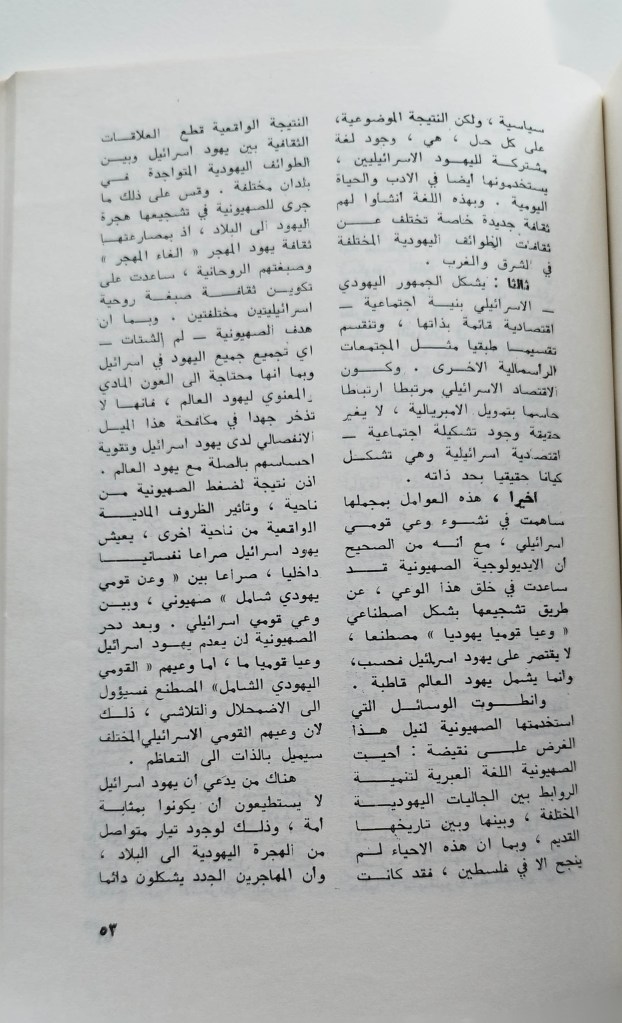 سياسية ، ولكن النتيجة الموضوعية،
على كل حال ، هي ، وجود لغة
مشتركة لليهود الاسرائيليين ،
يستخدمونها ايضا في الادب والحياة
اليومية . وبهذه اللغة انشاوا لهم
ثقافة جديدة خاصة تختلف عن
ثقافات الطوائف اليهودية المختلفة
في الشرق والغرب .
ثالثا : يشكل الجمهور اليهودي
ــ الاسرائيلي بنية اجتماعية ــ
اقتصادية قائمة بذاتها ، وتنقسم
تقسيما طبقيا مثل المجتمعات
الرأسمالية الاخرى . وكون
الاقتصاد الاسرائيلي مرتبطا ارتباطا
حاسما بتمويل الامبريالية ، لا يغير
حقيقة وجود تشكيلة اجتماعية ــ
اقتصادية اسرائيلية وهي تشكل
كيانا حقيقيا بحد ذاته .
اخيرا ، هذه العوامل بمجملها
ساهمت في نشوء وعي قومي
اسرائيلي ، مع انه من الصحيح
ان الايديولوجية الصهيونية قد
ساعدت في خلق هذا الوعي ، عن
طريق تشجيعها بشكل اصطناعي
« وعيا قوميا يهوديا » مصطنعا ،
لا يقتصر على يهود اسرائيل فحسب،
وانما يشمل يهود العالم قاطبة .
وانطوت الوسائل التي
استخدمتها الصهيونية لنيل هذا
الغرض على نقيضة : أحيت
الصهيونية اللغة العبرية لتنمية
الروابط بين الجاليات اليهودية
المختلفة ، وبينها وبين تاريخها
القديم ، وبما ان هذه الاحياء لم
ينجح الا في فلسطين ، فقد كانت
النتيجة الواقعية قطع العلاقات
الثقافية بين يهود اسرائيل وبين
الطوائف اليهودية المتواجدة في
بلدان مختلفة . وقس على ذلك ما
جرى للصهيونية في تشجيعها هجرة
اليهود الى البلاد ، اذ بمصارعتها
ثقافة يهود المهجر « الغاء المهجر »
وصبغتهم الروحانية ، ساعدت على
تكوين ثقافة صبغة روحية
اسرائيليتين مختلفتين . وبما ان
هدف الصهيونية ــ لم الشتات ــ
اي تجميع جميع اليهود في اسرائيل
وبما انها محتاجة الى العون المادي
والمعنوي ليهود العالم ، فانها لا
تذخر جهدا في مكافحة هذا الميل
الانفصالي لدى يهود اسرائيل وتقوية
احساسهم بالصلة مع يهود العالم .
اذن نتيجة لضغط الصهيونية من
ناحية ، وتأثير الظروف المادية
الواقعية من ناحية اخرى ، يعيش
يهود اسرائيل صراعا نفسانيا
داخليا ، صراعا بين « وعن قومي
يهودي شامل » صهيوني ، وبين
وعي قومي اسرائيلي . وبعد دحر
الصهيونية لن يعدم يهود اسرائيل
وعيا قوميا ما ، اما وعيهم « القومي
اليهودي الشامل» المصطنع فسيؤول
الى الاضمحلال والتلاشي ، ذلك
لان وعيهم القومي الاسرائيلي المختلف
سيميل بالذات الى التعاظم .
هناك من يدعي ان يهود اسرائيل
لا يستطيعون ان يكونوا بمثابة
أمة ، وذلك لوجود تيار متواصل
من الهجرة اليهودية الى البلاد ،
وأن المهاجرين الجدد يشكلون دائما
٥٣